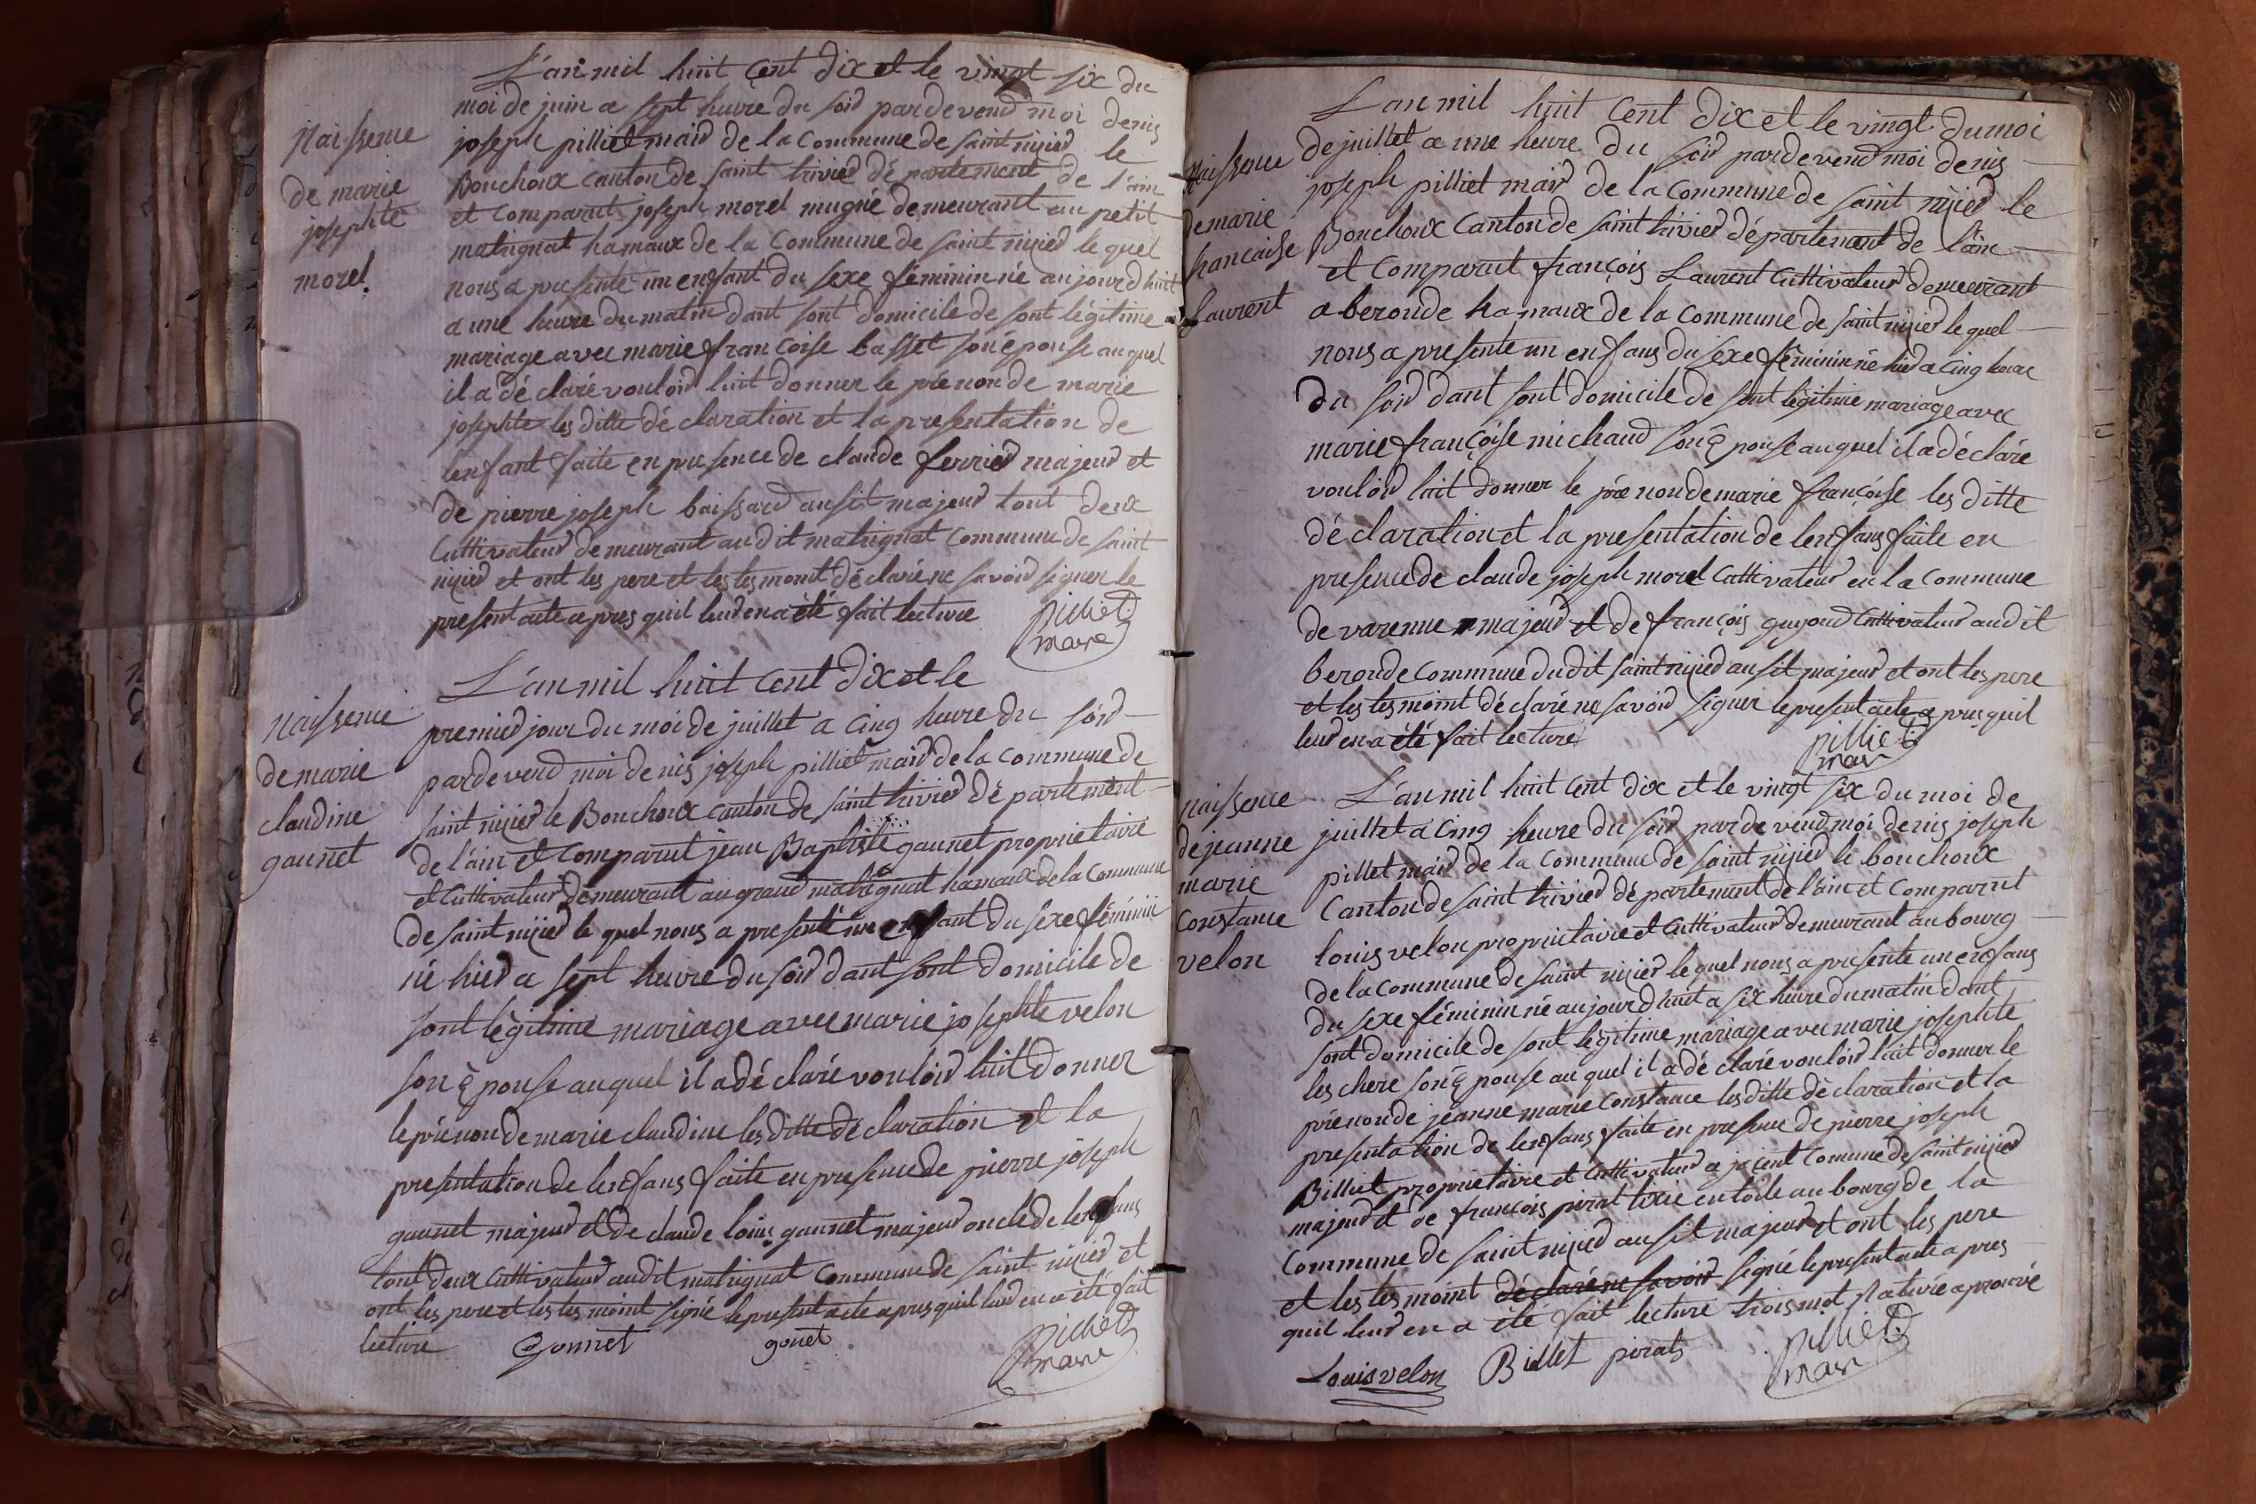 Naissence
de marie
josephte
morel.
L'an mil huit cent dix et le vingt six du
moi de juin a sept heure du soir pardevend moi denis
joseph pilliet mair de la Commune de saint nijier le
Bouchoux canton de saint trivier dé partement de l'ain
et comparut joseph morel mugnié demeurant au petit
matrignat hamaux de la Commune de saint nijier le quel
nous a presenté un enfant du sexe féminin né aujourd huit
a une heure du matin dant sont domicile de sont légitime
mariage avec marie françoise basset son épouse auquel
il a dé claré vouloir luit donner le prénon de marie
josephte les ditte dé claration et la presentation de
lenfant faite en presence de claude ferrier majeur et
de pierre joseph baissard ausit majeur tout deux
Cuttivateur demeurant audit matrignat commune de saint
nijier et ont les pere et les tesmoint déclaré ne savoir signer le
present acte a pres quil leur en a été fait lecture
pilliet
mare
Naissence
de marie
claudine
gaunet
L'an mil huit cent dix et le
premier jour du moi de juillet a cinq heure du soir
pardevend moi denis joseph pilliet mair de la commune de
saint nijier le Bouchoux canton de saint trivier dé partement
de l'ain et comparut jean Baptiste gaunet proprietaire
et Cuttivateur demeurant au grand matrignat hamaux de la Commune
de saint nijier le quel nous a presenté un enfant du sexe féminin
né hier a sept heure du soir dant sont domicile de
sont légitime mariage avec marie josephte velon
son épouse auquel il a dé claré vouloir luit donner
le prénon de marie claudine les ditte dé claration et la
presentation de lenfans faite en presence de pierre joseph
gaunet majeur et de claude louis gaunet majeur oncle de lenfans
tout deux Cuttivateur audit matrignat commune de saint nijier et
ont les pere et les tesmoint signé le present acte a pres quil leur en a été fait
lecture Gonnet gonet
pilliet
mare
Naissence
de marie
francaise
Laurent
L'an mil huit Cent dix et le vingt du moi
de juillet a une heure du soir pardevend moi denis
joseph pilliet mair de la commune de saint nijier le
Bouchoux Canton de saint trivier département de l'ain
et comparut françois Laurent Cuttivateur demeurant
a beronde hamaux de la commune de saint nijier le quel
nous a presenté un enfans du sexe féminin né hier a cinq heure
du soir dant sont domicile de sont légitime mariage avec
marie françoise michaud son épouse auquel il a déclaré
vouloir luit donner le pré non de marie françoise les ditte
dé claration et la presentation de lenfans faite en
presence de claude joseph morel cuttivateur en la commune
de varenne majeur et de françois guyond Cuttivateur audit
beronde commune dudit saint nijier ausit majeur et ont les pere
et les tesmoint déclaré ne savoir signer le present acte a pres quil
leur en a été fait lecture
pilliet
mare
Naissence
de jeanne
marie
Constance
velon
L'an mil huit cent dix et le vingt six du moi de
juillet a cinq heure du soir pardevend moi denis joseph
pillet mair de la Commune de saint nijier le bouchoux
Canton de saint trivier dé partement de l'ain et comparut
louis velon proprietaire et Cuttivateur demeurant au bourg
de la commune de saint nijier le quel nous a presenté un enfans
du sexe féminin né aujourdhuit a six heure du matin dant
sont domicile de sont légitime mariage avec marie josephte
leschere son épouse auquel il a dé claré vouloir luit donner le
prénon de jéanne marie constance les ditte dé claration et la
presentation de lenfans faite en presence de pierre joseph
Billiet proprietaire et cuttivateur a jocent Comune de saint nijier
majeur et de françois pirat tixié en toile au bourg de la
commune de saint nijier ausit majeur et ont les pere
et les tesmoint déclaré ne savoir signé le present acte a pres
quil leur en a été fait lecture trois mot rature aprouvé
Louis velon Billet pirat
pilliet
mare